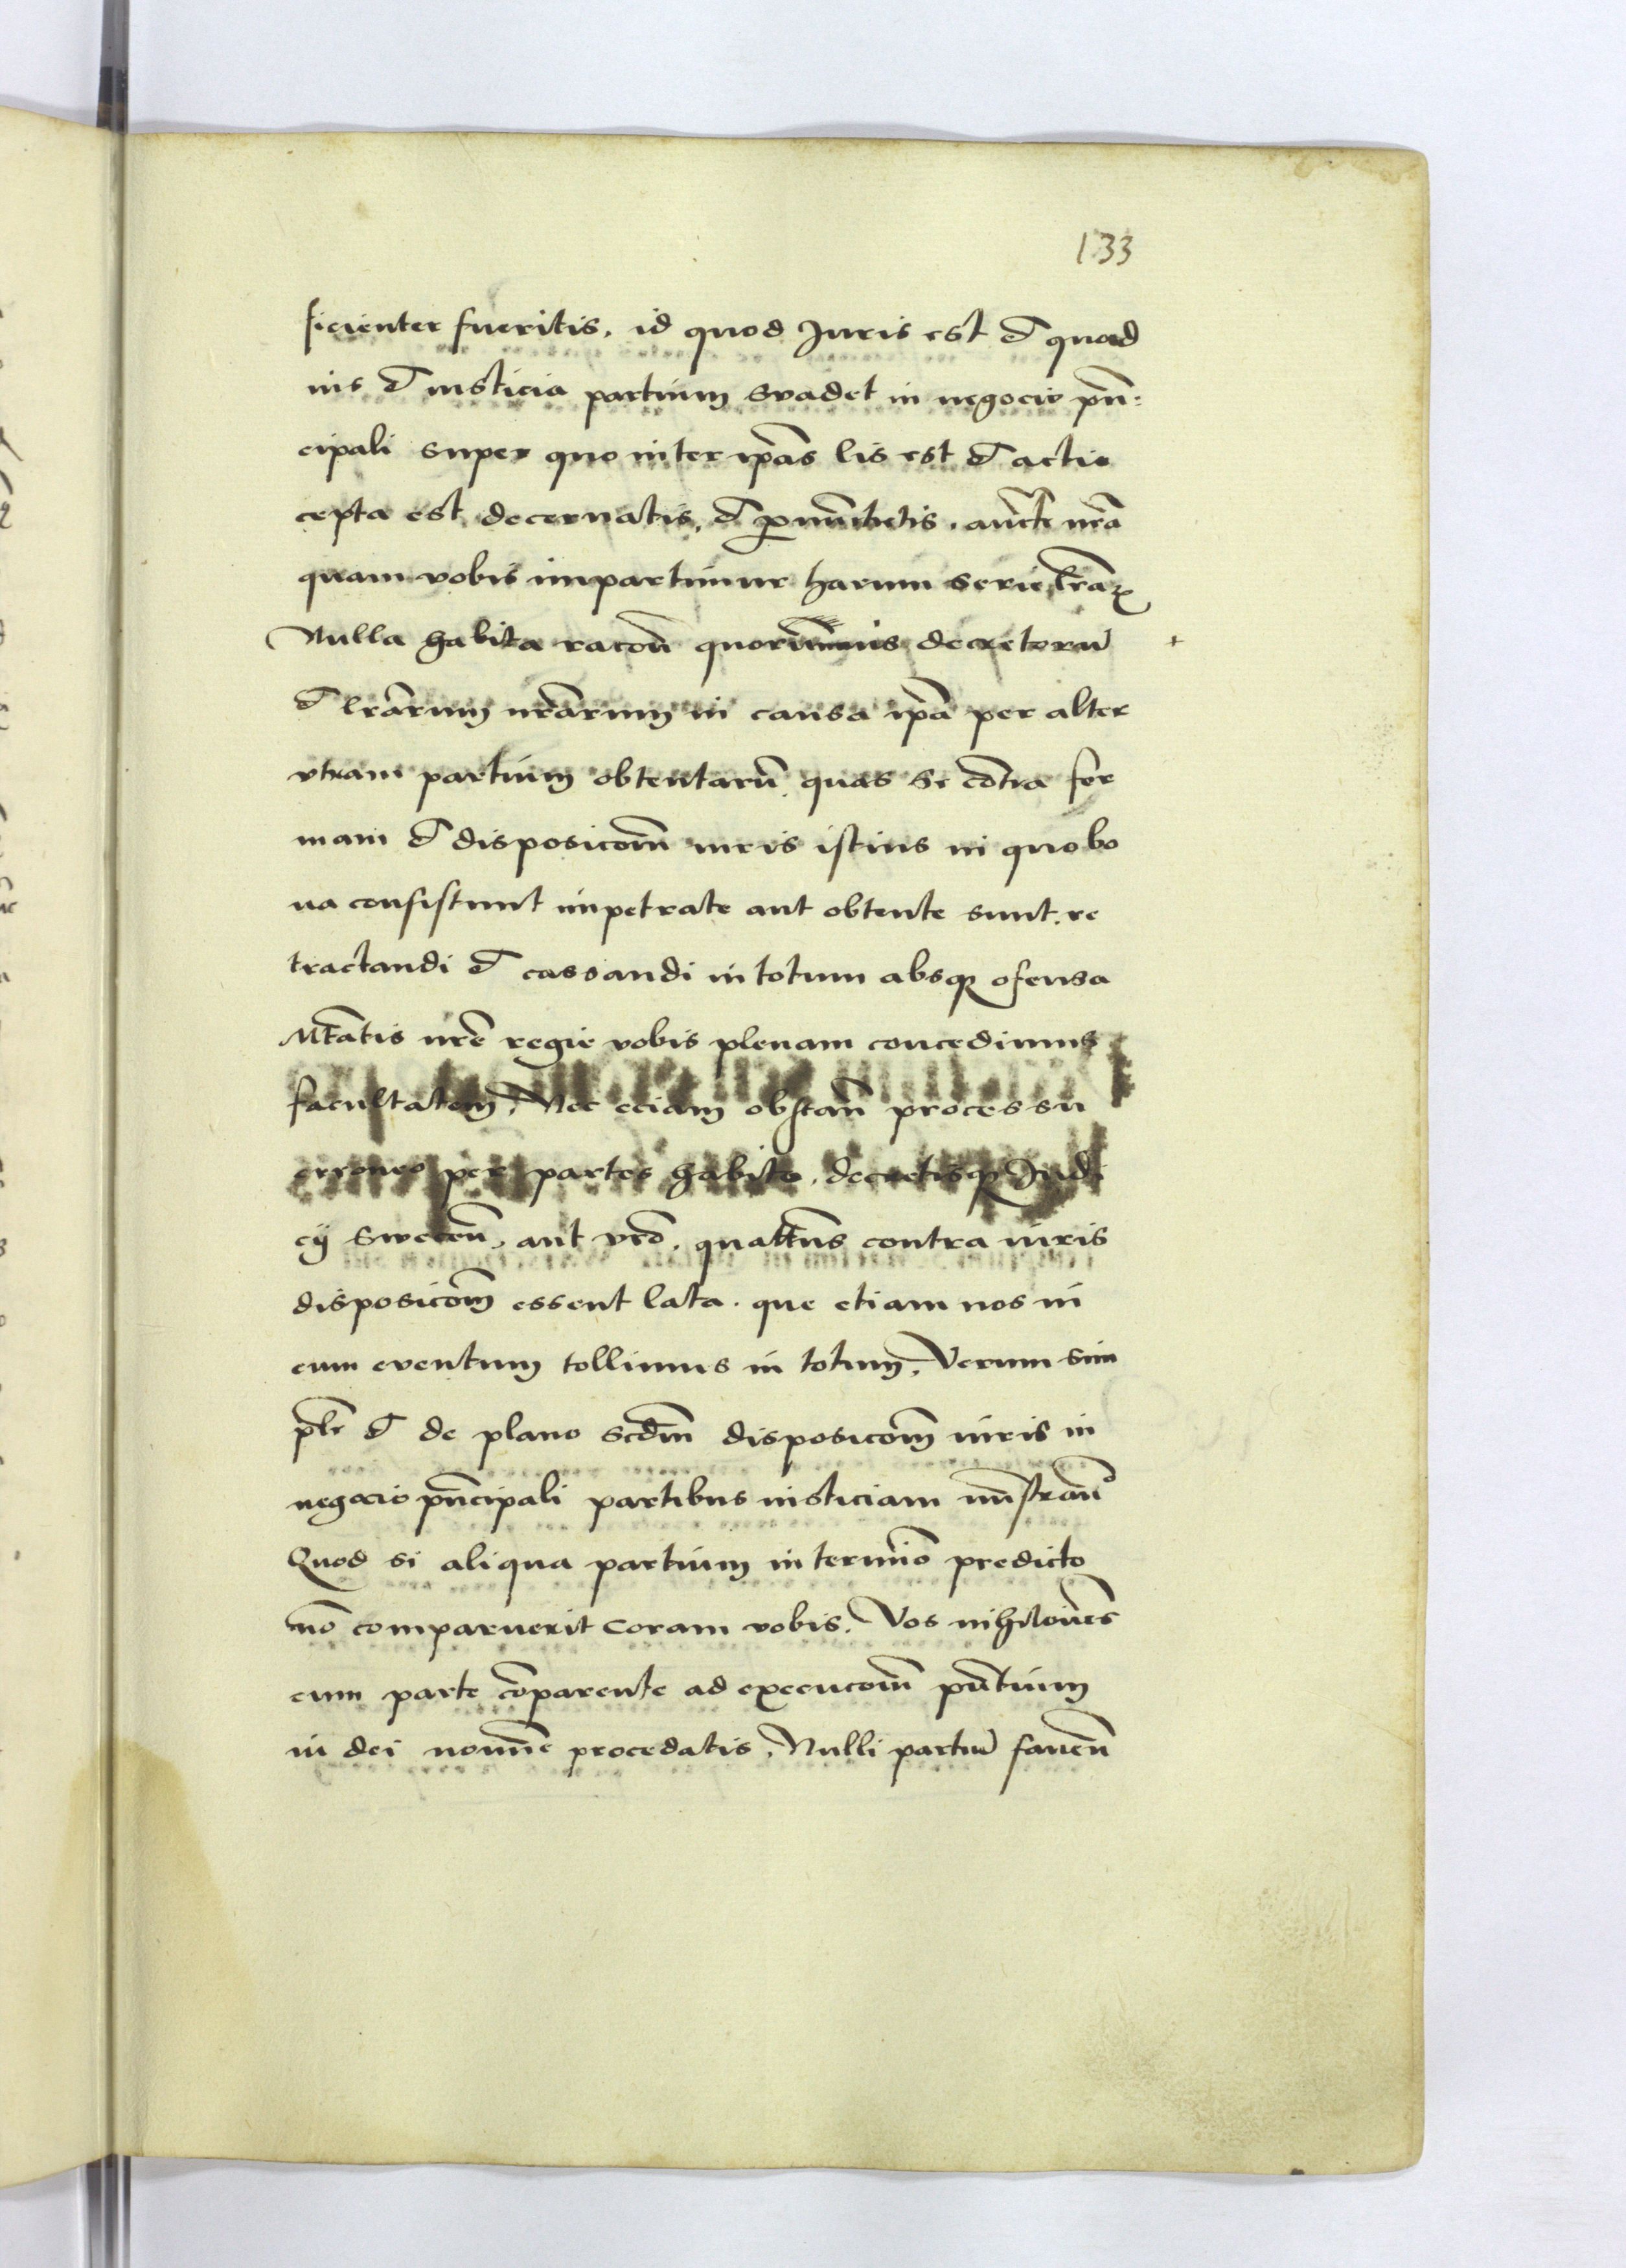 133
ficienter fueritis, id quod Juris est et quod
ius et iusticia partium suadet in negocio pñ:
cipali super quo inter ip̃as lis est et actio
cepta est decernatis, et ꝓnũctietis, auc̃te nr̃a
quam vobis impartimur harum serie lr̃aꝝ
Nulla habita racõn quorũmuis decretorũ
et lr̃arum nr̃arum in causa ip̃a per alter
vtram partium obtentarũ, quas si cõtra for
mam et disposicõm iuris istius in quo bo
na consistunt impetrate aut obtente sunt, re
tractandi et cassandi in totum absqꝫ ofensa
Mt̃atis nr̃e regie vobis plenam concedimus
facultatem, Nec eciam obstan̄ processu
erroneo per partes habito, decretisqꝫ Judi
cij Swecen̄, aut vr̃o, quaten̄s contra iuris
disposicõm essent lata. que etiam nos in
eum eventum tollimus in totum, Verum sim
pl̃r et de plano scd̃m disposicõm iuris in
negocio pñcipali partibus iusticiam mñstran̄º
Quod si aliqua partium in termĩo predicto
nõ comparuerit coram vobis. Vos nihilomĩes
cum parte cõparente ad execucõm pñtium
in dei nomĩe procedatis, Nulli partiũ fauen̄